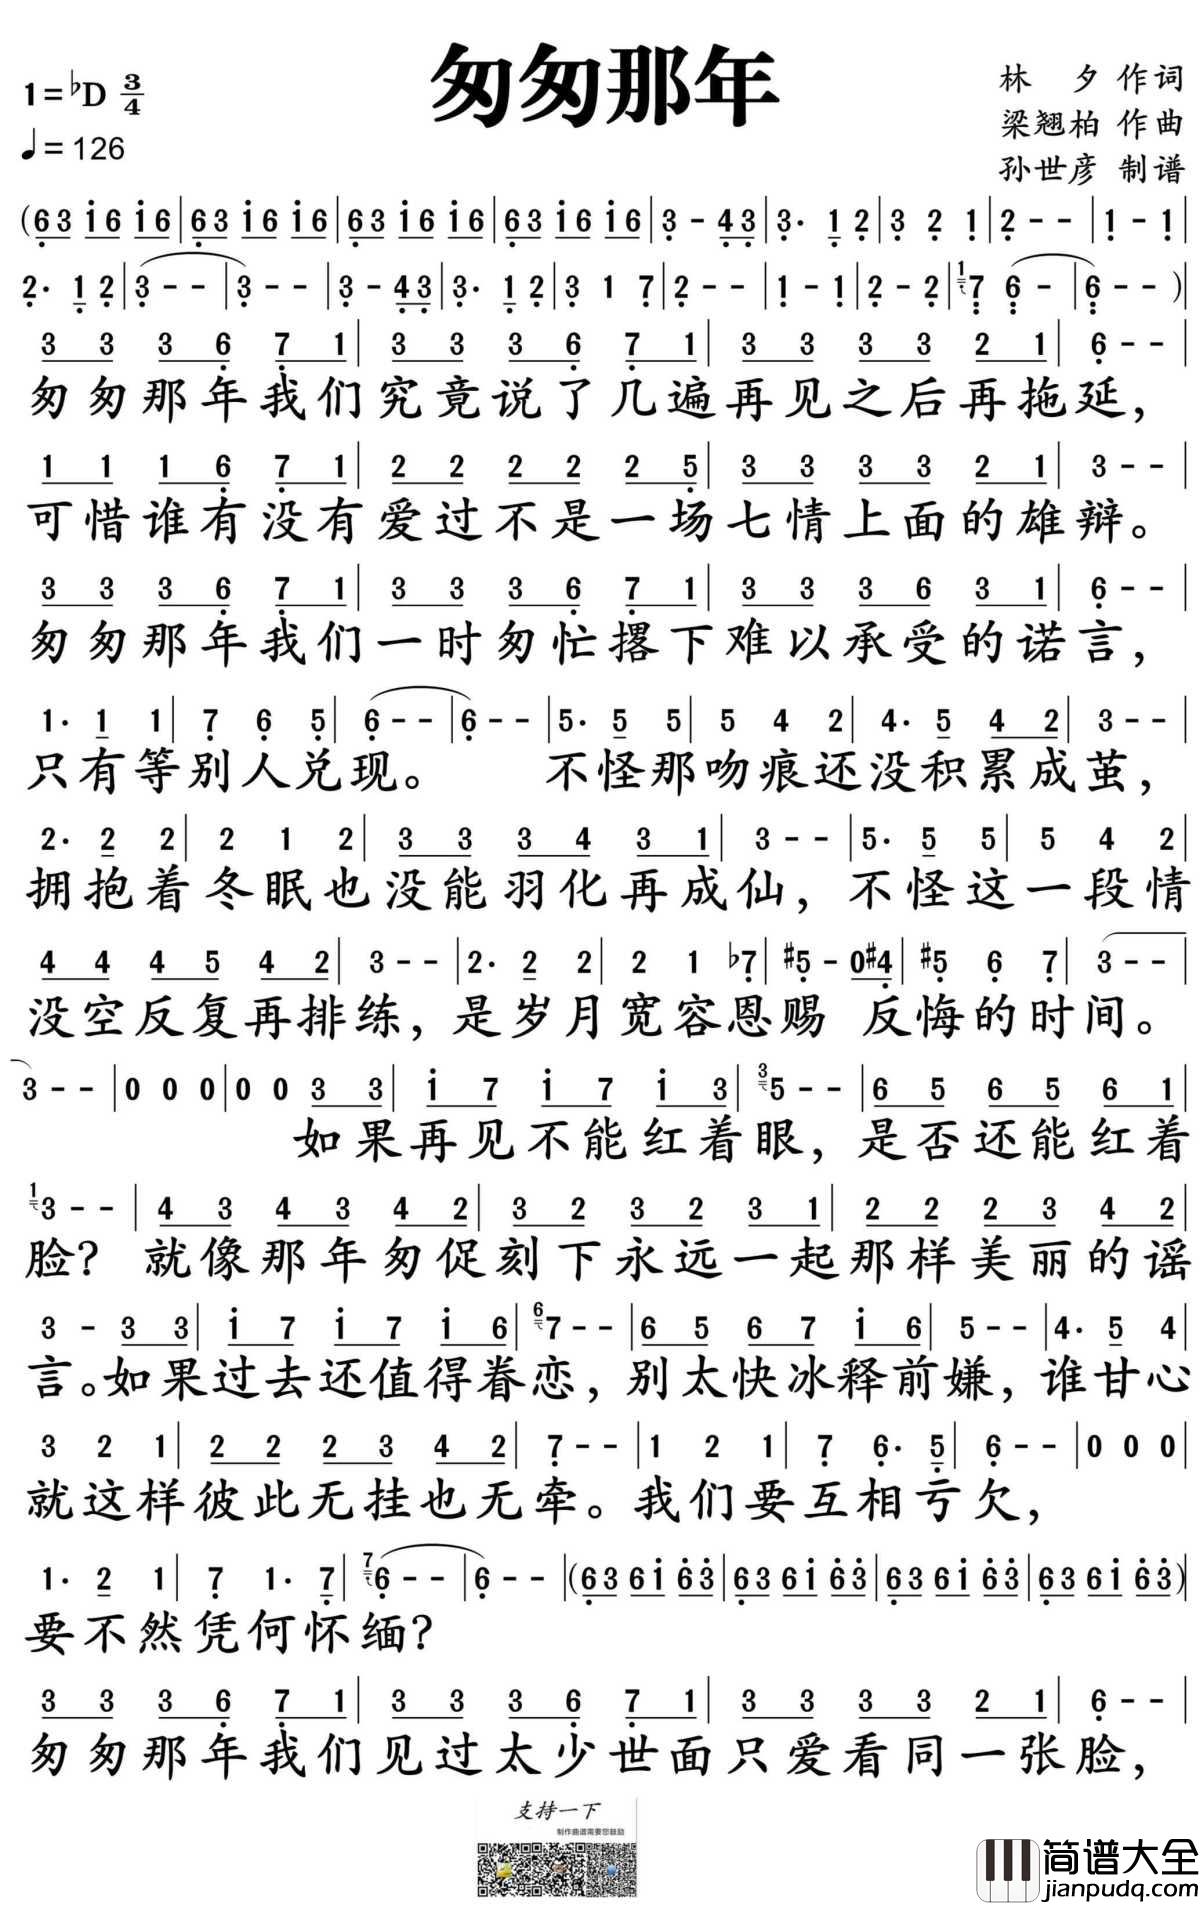 匆匆那年
1=♭D 3/4
♩=126
林 夕 作词
梁翘柏 作曲
孙世彦 制谱
(6̣3 1̇6 1̇6|6̣3 1̇6 1̇6|6̣3 1̇6 1̇6|6̣3 1̇6 1̇6|3̣ - 4̣3̣|3̣· 1̣ 2̣|3̣ 2̣ 1̣|2̣ - -|1̣ - 1̣|
2̣· 1̣ 2̣|3̣ - -|3̣ - -|3̣ - 4̣3̣|3̣· 1̣ 2̣|3̣ 1 7̣|2̣ - -|1̣ - 1̣|2̣ - 2̣|1 7̣ 6̣ -|6̣ - -)|
3 3 3 6̣ 7̣ 1|3 3 3 6̣ 7̣ 1|3 3 3 3 2 1|6̣ - -|
匆匆那年我们究竟说了几遍再见之后再拖延,
1 1 1 6̣ 7̣ 1|2 2 2 2 2 5̣|3 3 3 3 2 1|3 - -|
可惜谁有没有爱过不是一场七情上面的雄辩。
3 3 3 6̣ 7̣ 1|3 3 3 6̣ 7̣ 1|3 3 3 6 3 1|6̣ - -|
匆匆那年我们一时匆忙撂下难以承受的诺言,
1· 1 1|7̣ 6̣ 5̣|6̣ - -|6̣ - -|5· 5 5|5 4 2|4· 5 4 2|3 - -|
只有等别人兑现。 不怪那吻痕还没积累成茧,
2· 2 2|2 1 2|3 3 3 4 3 1|3 - -|5· 5 5|5 4 2|
拥抱着冬眠也没能羽化再成仙,不怪这一段情
4 4 4 5 4 2|3 - -|2· 2 2|2 1 ♭7̣|♯5̣ - 0♯4̣|♯5̣ 6̣ 7̣|3 - -|
没空反复再排练,是岁月宽容恩赐 反悔的时间。
3 - -|0 0 0|0 0 3 3|1̇ 7 1̇ 7 1̇ 3|3 5 - -|6 5 6 5 6 1|
如果再见不能红着眼,是否还能红着
1 3 - -|4 3 4 3 4 2|3 2 3 2 3 1|2 2 2 3 4 2|
脸? 就像那年匆促刻下永远一起那样美丽的谣
3 - 3 3|1̇ 7 1̇ 7 1̇ 6|6 7 - -|6 5 6 7 1̇ 6|5 - -|4· 5 4|
言。如果过去还值得眷恋,别太快冰释前嫌,谁甘心
3 2 1|2 2 2 3 4 2|7̣ - -|1 2 1|7̣ 6̣· 5̣|6̣ - -|0 0 0|
就这样彼此无挂也无牵。我们要互相亏欠,
1· 2 1|7̣ 1· 7̣|7 6̣ - -|6̣ - -|(6̣3 61̇ 6̇3̇|6̣3 61̇ 6̇3̇|6̣3 61̇ 6̇3̇|6̣3 61̇ 6̇3̇)|
要不然凭何怀缅?
3 3 3 6̣ 7̣ 1|3 3 3 6̣ 7̣ 1|3 3 3 3 2 1|6̣ - -|
匆匆那年我们见过太少世面只爱看同一张脸,
支持一下
制作曲谱需要您鼓励
简谱大全
jianpudq.com